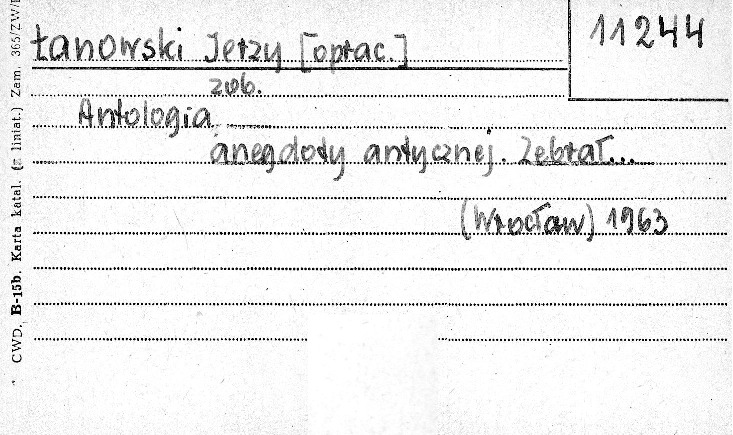 Łanowski Jerzy [oprac.]
11244
zob.
Antologia
anegdoty antycznej. Zebrał...
(Wrocław) 1963
CWD, B-15b. Karta katal. (z liniat.) Zam. 365/ZW/